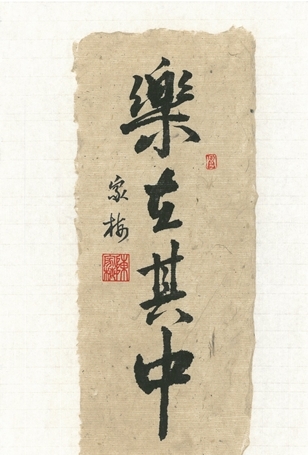 樂在其中
家梅